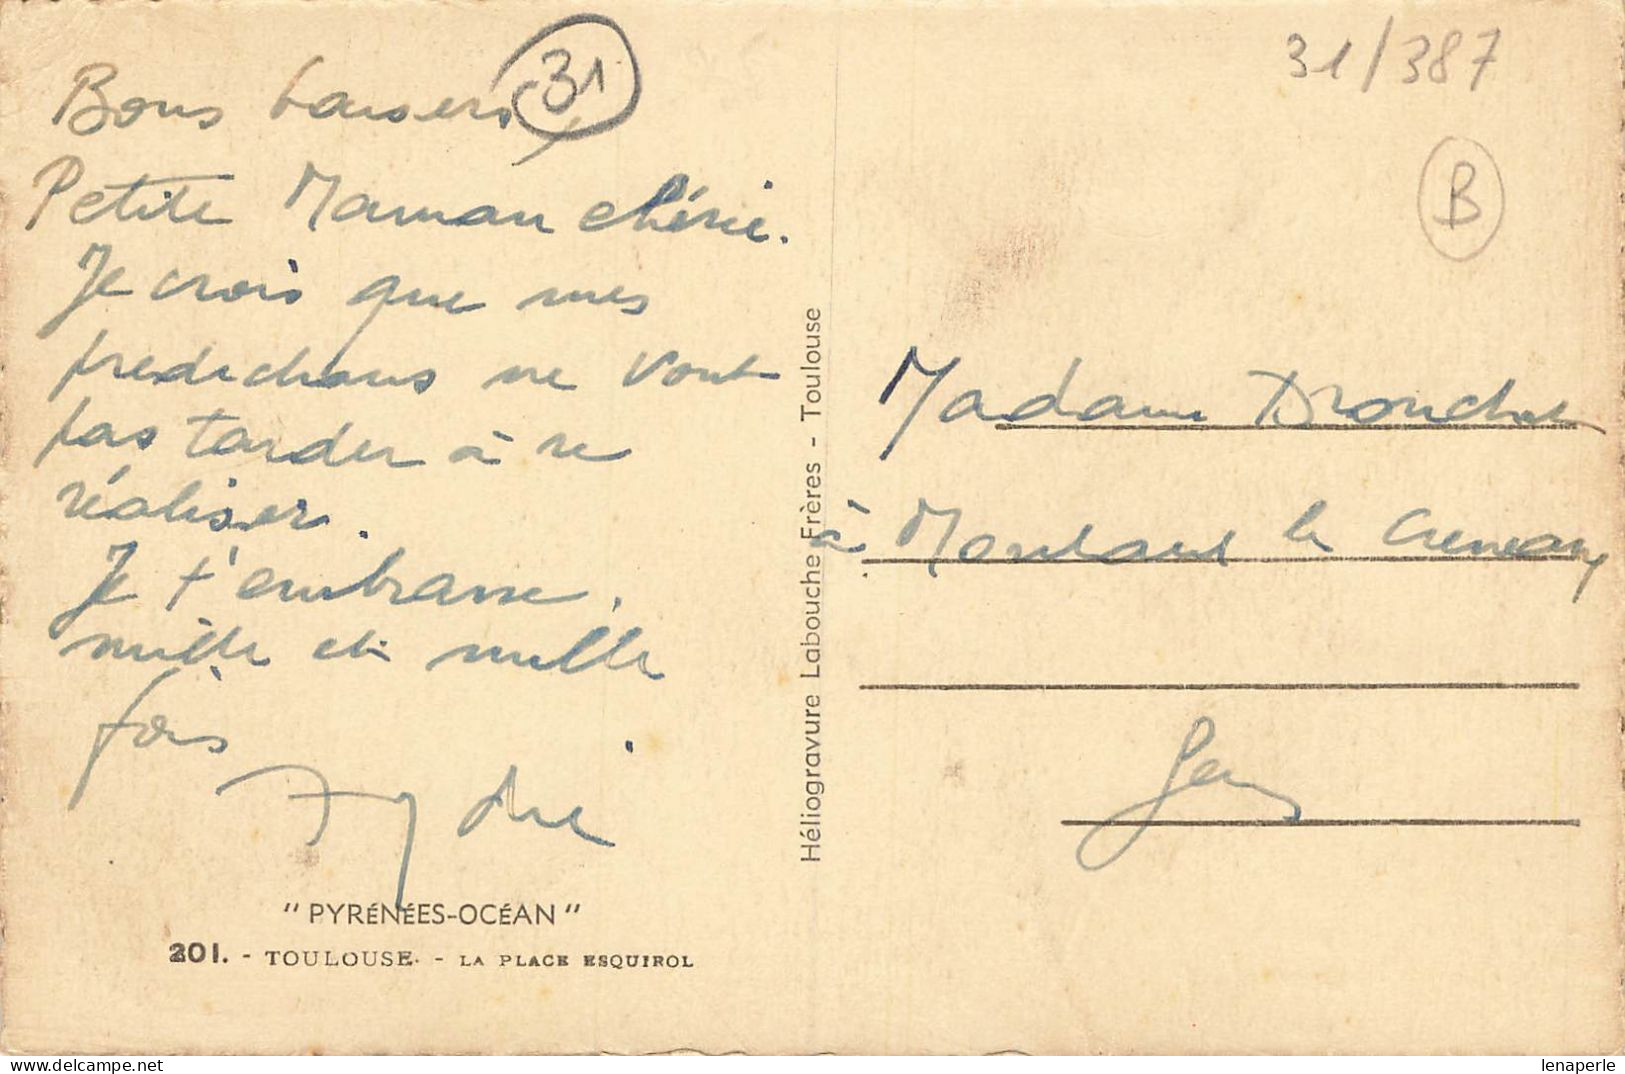 31
31/387
B
Bons baisers
Petite Maman chérie.
Je crois que mes
predichons ne vont
pas tarder à se
réaliser.
Je t'embrasse.
mille et mille
fois
"PYRÉNÉES-OCÉAN"
201. - TOULOUSE. - LA PLACE ESQUIROL
Héliogravure Labouche Frères - Toulouse
Madame
à Montaut les Creneaux
Gers
lenaperle